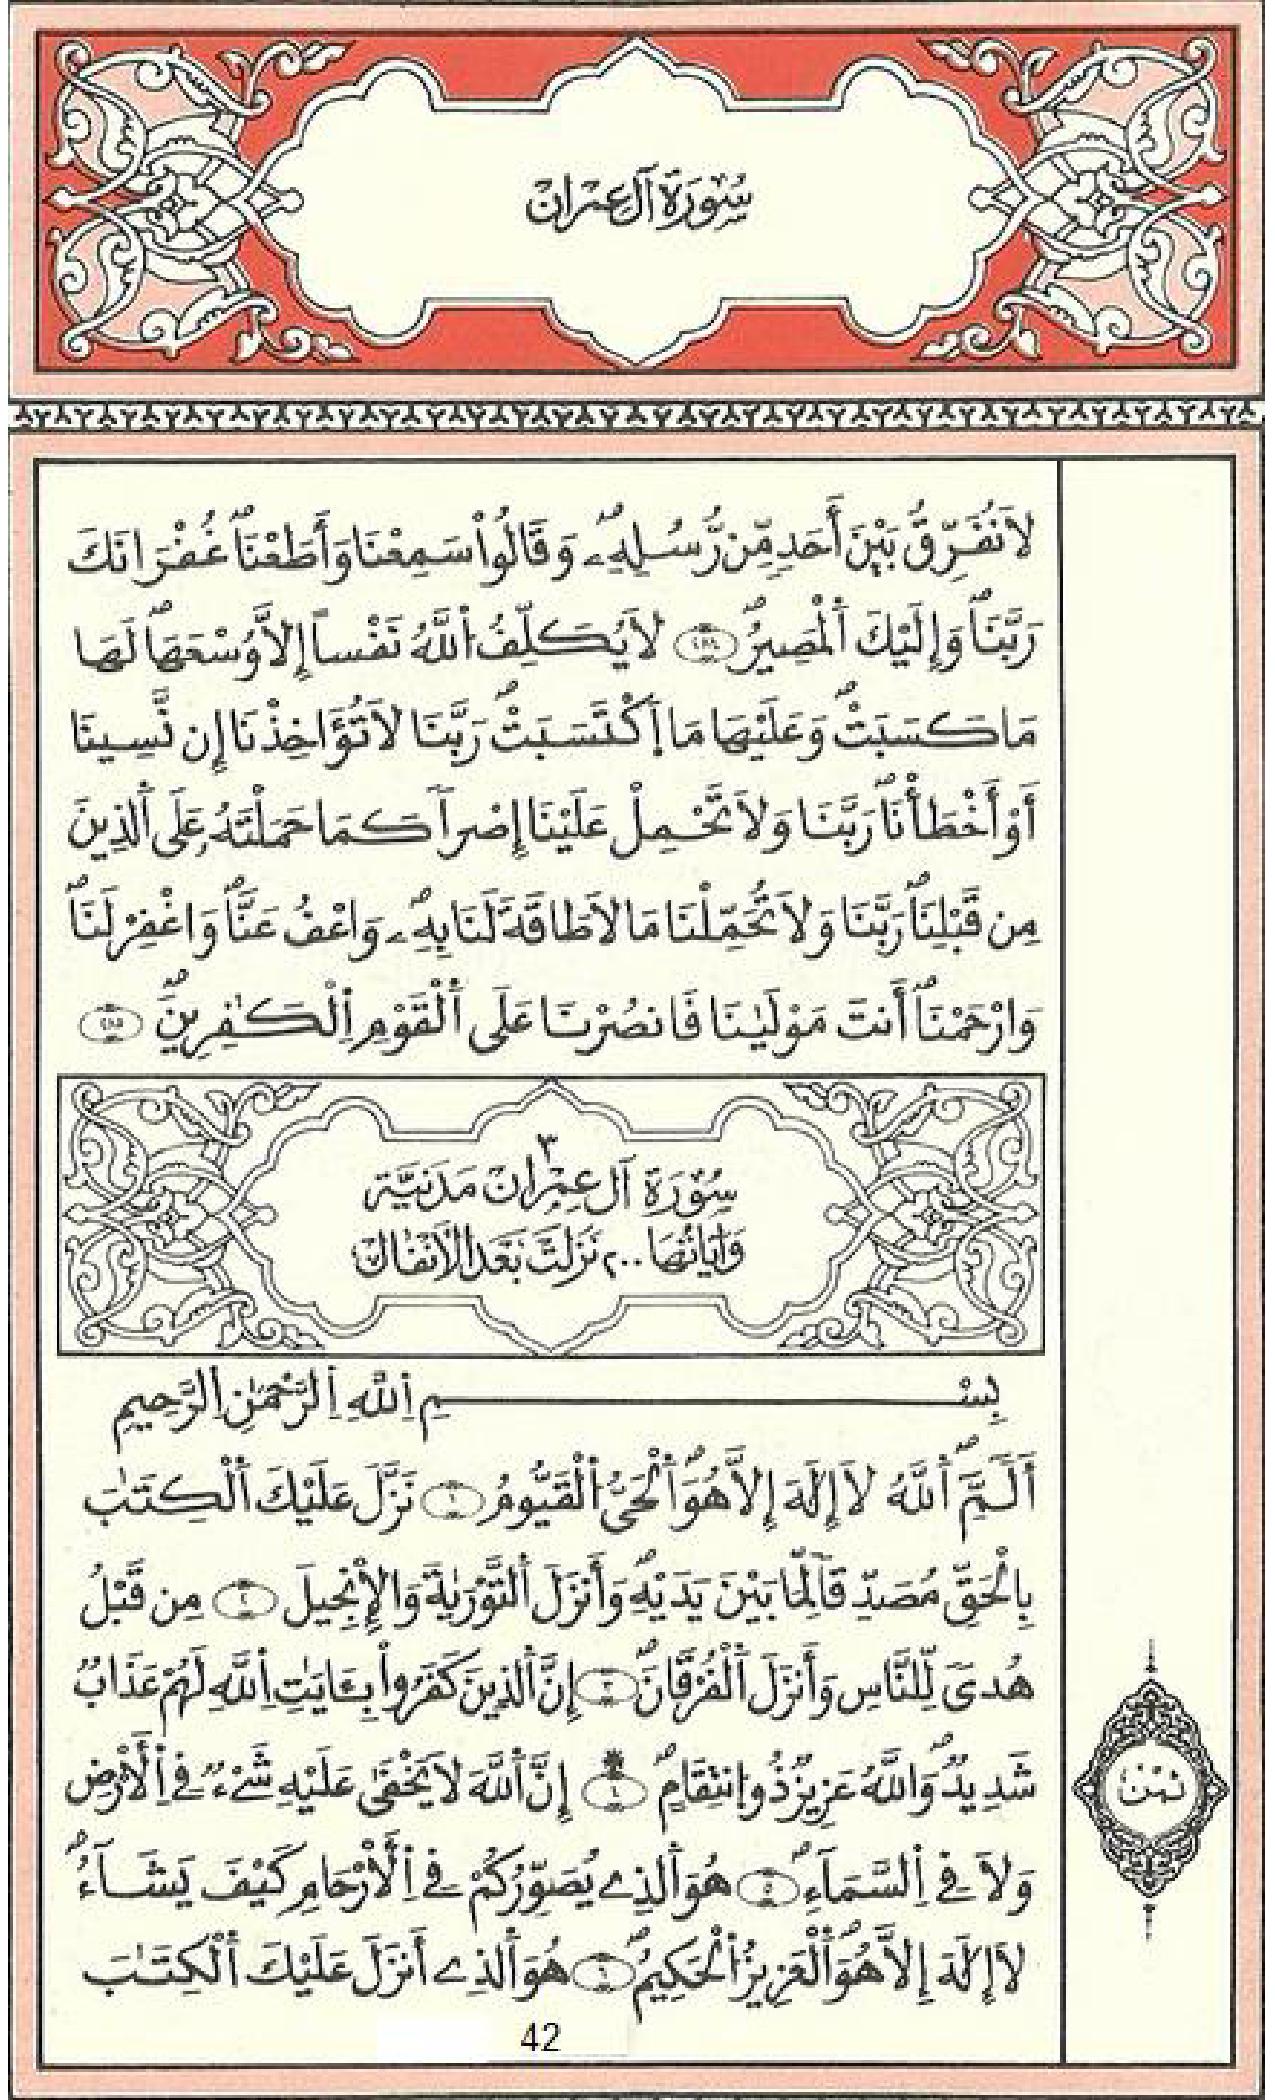 سُورَةُ آلِ عِمْرَانَ
لَا نُفَرِّقُ بَيْنَ أَحَدٍ مِّن رُّسُلِهِۦ وَقَالُواْ سَمِعْنَا وَأَطَعْنَا غُفْرَانَكَ
رَبَّنَا وَإِلَيْكَ ٱلْمَصِيرُ لَا يُكَلِّفُ ٱللَّهُ نَفْساً إِلَّا وُسْعَهَا لَهَا
مَا كَسَبَتْ وَعَلَيْهَا مَا ٱكْتَسَبَتْ رَبَّنَا لَا تُؤَاخِذْنَا إِن نَّسِينَا
أَوْ أَخْطَأْنَا رَبَّنَا وَلَا تَحْمِلْ عَلَيْنَا إِصْراً كَمَا حَمَلْتَهُۥ عَلَى ٱلَّذِينَ
مِن قَبْلِنَا رَبَّنَا وَلَا تُحَمِّلْنَا مَا لَا طَاقَةَ لَنَا بِهِۦ وَاعْفُ عَنَّا وَاغْفِرْ لَنَا
وَارْحَمْنَا أَنتَ مَوْلَىٰنَا فَانصُرْنَا عَلَى ٱلْقَوْمِ ٱلْكَٰفِرِينَ ٢٨٥
٣
سُورَةُ آلِ عِمْرَانَ مَدَنِيَّة
وَآيَاتُهَا ٢٠٠ نَزَلَتْ بَعْدَ الْأَنْفَالِ
بِسْمِ ٱللَّهِ ٱلرَّحْمَٰنِ ٱلرَّحِيمِ
أَلَٓمِّٓ ٱللَّهُ لَا إِلَٰهَ إِلَّا هُوَ ٱلْحَيُّ ٱلْقَيُّومُ ١ نَزَّلَ عَلَيْكَ ٱلْكِتَٰبَ
بِالْحَقِّ مُصَدِّقاً لِّمَا بَيْنَ يَدَيْهِ وَأَنزَلَ ٱلتَّوْرَىٰةَ وَالْإِنجِيلَ ٢ مِن قَبْلُ
هُدىً لِّلنَّاسِ وَأَنزَلَ ٱلْفُرْقَانَ ٣ إِنَّ ٱلَّذِينَ كَفَرُواْ بِـَٔايَٰتِ ٱللَّهِ لَهُمْ عَذَابٌ
شَدِيدٌ وَاللَّهُ عَزِيزٌ ذُو انتِقَامٍ ٤ إِنَّ ٱللَّهَ لَا يَخْفَىٰ عَلَيْهِ شَيْءٌ فِي ٱلْأَرْضِ
وَلَا فِي ٱلسَّمَآءِ ٥ هُوَ ٱلَّذِي يُصَوِّرُكُمْ فِي ٱلْأَرْحَامِ كَيْفَ يَشَآءُ
لَا إِلَٰهَ إِلَّا هُوَ ٱلْعَزِيزُ ٱلْحَكِيمُ ٦ هُوَ ٱلَّذِي أَنزَلَ عَلَيْكَ ٱلْكِتَٰبَ
ثُمُن
42